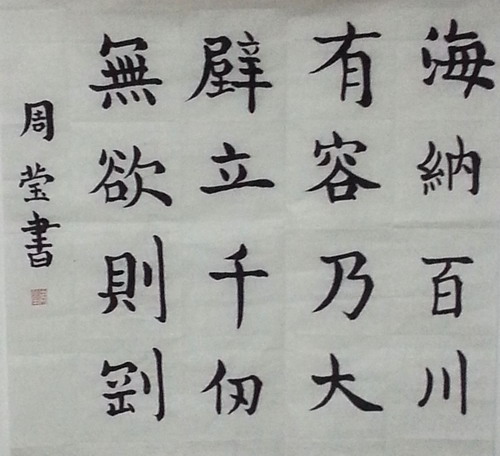 海納百川
有容乃大
壁立千仞
無欲則剛
周莹書